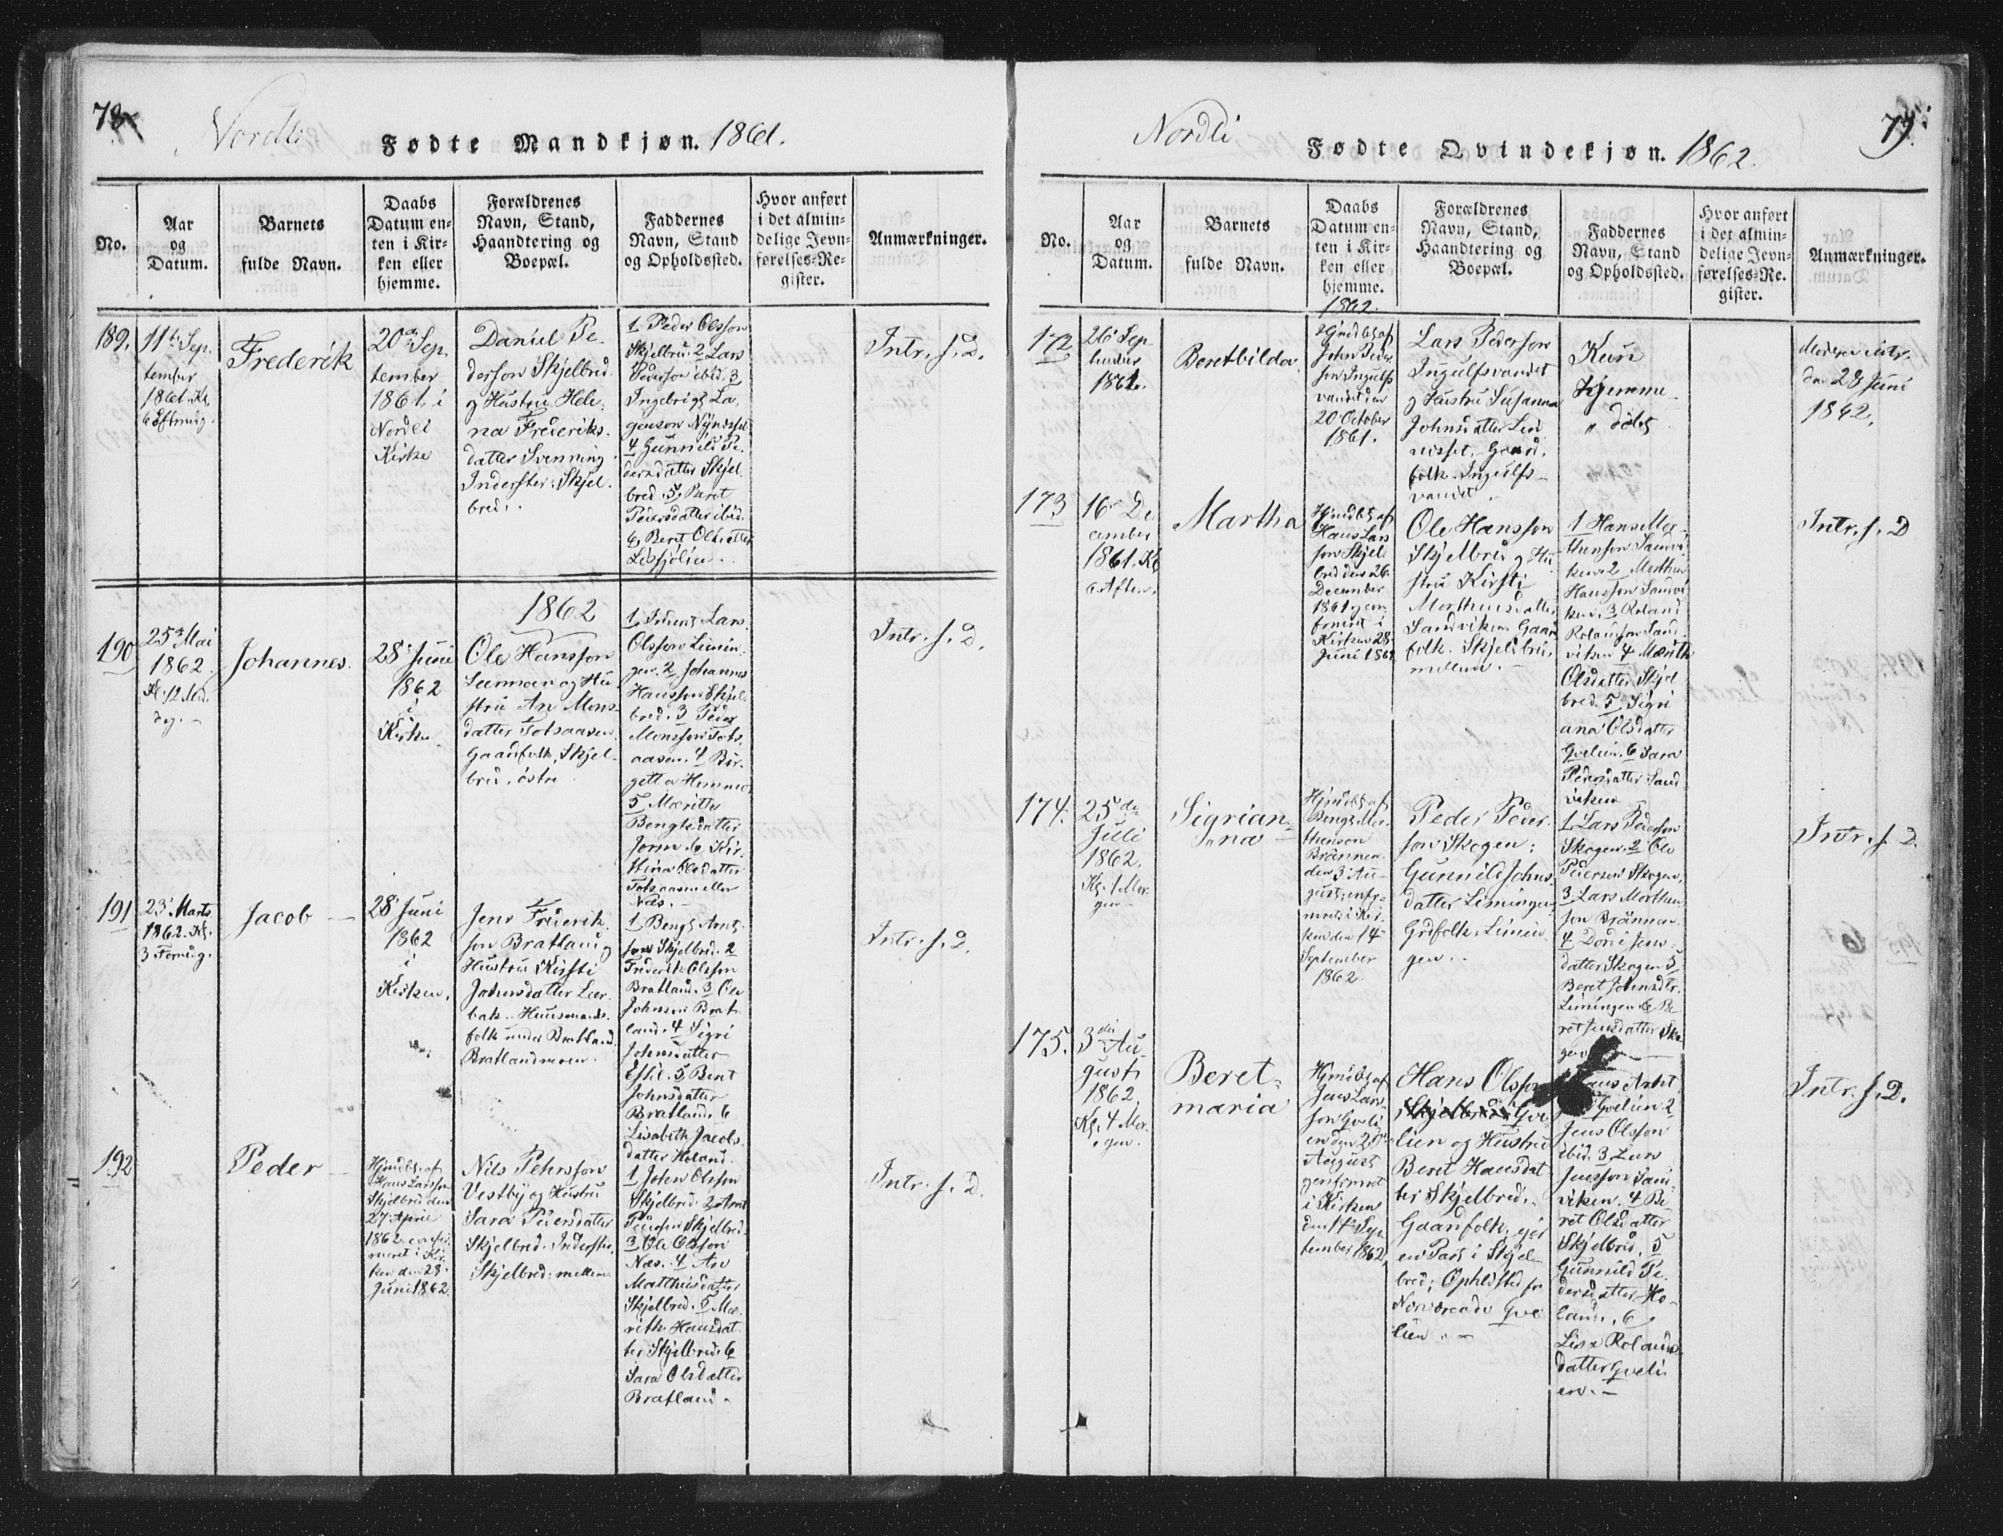 78
Nordli
Fødte Mandkjøn. 1861.
No.
Aar
og
Datum.
Barnets
fulde Navn.
Daabs
Datum en-
ten i Kir-
ken eller
hjemme.
Forældrenes
Navn, Stand,
Haandtering og
Boepæl.
Faddernes
Navn, Stand
og Opholdssted.
Hvor anført
i det almin-
delige Jevn-
førelses-Re-
gister.
Anmærkninger.
189.
11te Sep-
tember
1861. Kl.
6 Eftmdg.
Frederik
20de Sep-
tember
1861. i
Nordli
Kirke
Daniel Pe-
derson Skjelbred
og Hustru Hele-
na Frederiks-
datter Svenning
Inderster Skjel-
bred.
1, Peder Olsson
Skjelbred. 2 Lars
Pederson ibid. 3
Ingebrigt La-
4 Gunnild Pe-
dersdatter Skjel-
bred. 5, Beret
Pedersdatter ibid.
6, Beret Olsdatter
Intr. s. D.
1862
190
25de Mai
1862.
Kl. 12 Mid-
dag.
Johannes.
28de Juni
1862
i
Kirke
Ole Hansson
og Hu-
stru An Mons-
datter Totsaasen
Gaardfolk, Skjel-
bred, østre
Olsson Limin-
gen. 2, Johannes
Hansson Skjel-
bred. 3 Peder
Monsson Tots-
aasen. 4 Bir-
5 Marithe
Bengtsdatter
Jorm. 6 Kir-
stina Olsdatter
Totsaasen eller
Næs.
Intr. s. D.
191
23de Marts
1862. Kl.
3 Formdg.
Jacob
28de Juni
1862
i
Kirken.
Jens Frederik-
son Bratland og
Hustru Kirsti
Johnsdatter Leer-
bak. Huusmands-
folk under Bratland
Bratlandmoen.
1 Bengt Arnt-
son Skjelbred. 2
Frederik Olsson
Bratland. 3 Ole
Johnson Brat-
land. 4 Sigri
Johnsdatter
5, Beret
Johnsdatter
Bratland. 6
Lisabeth Jacobs-
datter Holand.
Intr. s. D.
192
Peder
Hjmdbt. af
Hans Larsson
Skjelbred den
27 April
1862. confir-
meret i Kir-
ken den 28
Juni 1862.
Nils Pehrsson
Vestby og Hustru
Sara Pedersdatter
Skjelbred. Inderster,
Skjelbred, mellem
1 John Olsson
Skjelbred. 2 Arnt
Pederson Skjelbred.
3 Ole Olsson
Næs. 4 An
Matthiasdatter
Skjelbred. 5 Ma-
rith Hansdat-
ter Skjelbred. 6
Sara Olsdatter
Bratland.
Intr. s. D.
79.
Nordli
Fødte Qvindekjøn. 1862.
No.
Aar
og
Datum.
Barnets
fulde Navn.
Daabs
Datum en-
ten i Kir-
ken eller
hjemme.
Forældrenes
Navn, Stand,
Haandtering og
Boepæl.
Faddernes
Navn, Stand
og Opholdssted.
Hvor anført
i det almin-
delige Jevn-
førelses-Re-
gister.
Anmærkninger.
1862.
172
26de Sep-
tember
1861.
Beretbilda.
Hjmdbt. af
John Peder-
son Ingulfs-
vandet den
20 October
1861.
Lars Pederson
Ingulfsvandet
og Hustru Susanna
Johnsdatter
Gaard-
folk. Ingulfs-
vandet.
Kun
Hjemme-
døbt
Moderen intr.
den 28 Juni
1862.
173
16de De-
cember
1861. Kl.
6 Aften.
Martha
Hjmdbt. af
Hans Lars-
son Skjel-
bred den 26
December
1861 og con-
firmeret i
Kirken 28
Juni 1862
Ole Hansson
Skjelbred og Hu-
stru Kirsti
Morthensdatter
Sandviken. Gaard-
folk. Skjelbred,
mellem.
1 Hans Mor-
thenson Sandvi-
ken. 2 Morthen
Hansson Sandvi-
ken. 3 Roland
Rolandson Sand-
viken. 4 Marith
Olsdatter Skjel-
bred. 5, Sigri-
ana Olsdatter
Gvelien. 6 Sara
Pedersdatter Sand-
viken
Intr. s. D
174.
25de
Juli
1862.
Kl. 1 Mor-
gen
Sigrian-
na
Hjmdbt. af
Bengt Mor-
thenson
Brännen
den 3 Au-
gust, confir-
meret i Kir-
ken den 14
September
1862.
Peder Peder-
son Skogen;
Gunnild Johns-
datter Limingen
Grdfolk. Limin-
gen.
1 Lars Pederson
Skogen. 2 Ole
Pederson Skogen,
3 Lars Morthen-
son Brännen
4 Dorit Jens-
datter Skogen 5
Beret Johnsdtr.
Limingen. 6 Be-
ret Jensdatter Sko-
gen
Intr. s. D.
175.
3die Au-
gust
1862.
Kl. 4 Mor-
gen.
Beret-
maria
Hjmdbt. af
Jens Lars-
son Gveli-
en den
August
igjen confirmeret
i Kirken
den 14de Sep-
tember 1862.
Hans Olsson
Skjelbred Gve-
lien og Hustru
Beret Hansdat-
ter Skjelbred.
Gaardfolk, ejer
en Part i Skjel-
bred; Opholdsted for
Nærværende Gve-
lien.
Gvelien 2
Jens Olsson
ibid. 3 Lars
Jensson Sand-
viken. 4 Be-
ret Olsdatter
Skjelbred. 5
Gunnild Pe-
dersdatter Ho-
land. 6
Lisa Rolands-
datter Gveli-
en.
Intr. s. D.